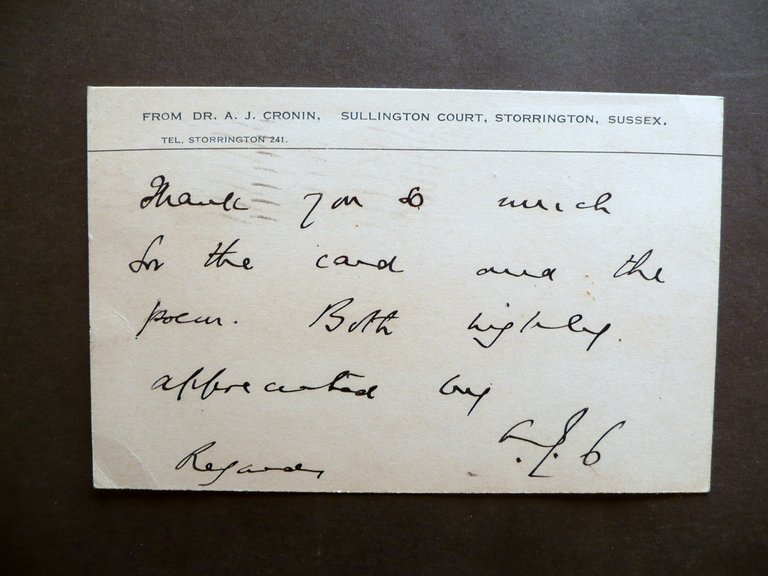 FROM DR. A. J. CRONIN, SULLINGTON COURT, STORRINGTON, SUSSEX.
TEL. STORRINGTON 241.
Thank you so much
for the card and the
poem. Both highly
appreciated by
A.J.C
Regards